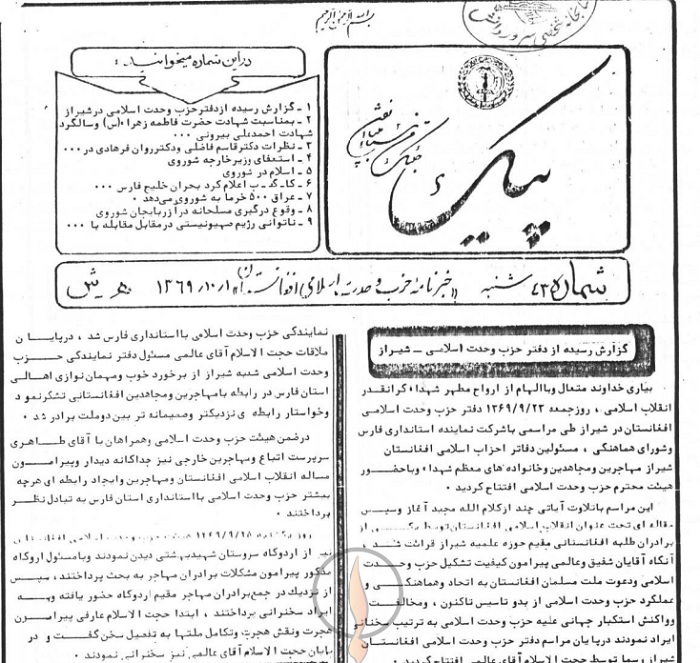 بسم الله الرحمن الرحیم
پیک
شماره ۴۳ شنبه «خبرنامه حزب وحدت اسلامی افغانستان» ۱۳۶۹/۱۰/۱ ه ش
در این شماره میخوانید :
۱ ـ گزارش رسیده ازدفترحزب وحدت اسلامی درشیراز
۲ ـ بمناسبت شهادت حضرت فاطمه زهرا (س) وسالگرد
شهادت احمدعلی بیرونی ۰۰۰
۳ ـ نظرات دکترقاسم فاضلی ودکترروان فرهادی در ۰۰۰
۴ ـ استعفای وزیرخارجه شوروی
۵ ـ اسلام در شوروی
۶ ـ کاـ گ ـ ب اعلام کرد بحران خلیج فارس ۰۰۰
۷ ـ عراق ۵۰۰ خرما به شوروی میدهد ۰
۸ ـ وقوع درگیری مسلحانه درآزربایجان شوروی
۹ ـ ناتوانی رژیم صهیونیستی درمقابل مقابله با ۰۰۰
گزارش رسیده از دفتر حزب وحدت اسلامی ـ شیراز
بیاری خداوند متعال وباالهام از ارواح مطهر شهدا، گرانقدر
انقلاب اسلامی ، روزجمعه ۱۳۶۹/۹/۲۳ دفتر حزب وحدت اسلامی
افغانستان در شیراز طی مراسمی باشرکت نماینده استانداری فارس
وشورای هماهنگی ، مسئولین دفاتر احزاب اسلامی افغانستان
شیراز مهاجرین ومجاهدین وخانواده های معظم شهدا، وباحضور
هیئت محترم حزب وحدت اسلامی افتتاح گردید ۰
این مراسم باتلاوت آیاتی چند ازکلام الله مجید آغاز وسپس
مقاله ای تحت عنوان انقلاب اسلامی افغانستان توسط یکی از
برادران طلبه افغانستانی مقیم حوزه علمیه شیراز قرائت شد ،
آنگاه آقایان شفیق وعالمی پیرامون کیفیت تشکیل حزب وحدت
اسلامی ودعوت ملت مسلمان افغانستان به اتحاد وهماهنگی و
عملکرد حزب وحدت اسلامی از بدو تاسیس تاکنون ، ومخالفت
وواکنش استکبار جهانی علیه حزب وحدت اسلامی به ترتیب سخنانی
ایراد نمودند درپایان مراسم دفتر حزب وحدت اسلامی افغانستان
شیراز رسما توسط حجت الاسلام آقای عالمی افتتاح گردید ۰
نمایندگی حزب وحدت اسلامی بااستانداری فارس شد ، درپایان
ملاقات حجت الاسلام آقای عالمی مسئول دفتر نمایندگی حزب
وحدت اسلامی شعبه شیراز از برخورد خوب ومهمان نوازی اهالی
استان فارس در رابطه بامهاجرین ومجاهدین افغانستانی تشکرنمود
وخواستار رابطه ی نزدیکتر وصمیمانه تر بین دوملت برادر شد ۰
درضمن هیئت حزب وحدت اسلامی وهمراهان با آقای طاهری
سرپرست اتباع ومهاجرین خارجی نیز جداگانه دیدار وپیرامون
مساله انقلاب اسلامی افغانستان ومهاجرین وایجاد رابطه ای هرچه
بیشتر حزب وحدت اسلامی بااستانداری استان فارس به تبادل نظر
پرداختند ۰
۱۳۶۹/۹/۲۵ هیئت حزب وحدت اسلامی افغانستان
نیز از اردوگاه سروستان شهیدبهشتی دیدن نمودند وبامسئول اردوگاه
مذکور پیرامون مشکلات برادران مهاجر به بحث پرداختند ، سپس
از نزدیک در جمع برادران مهاجر مقیم اردوگاه حضور یافته وبه
ایراد سخنرانی پرداختند ، ابتدا حجت الاسلام عارفی پیرامون
هجرت ونقش هجرت وتکامل ملتها به تفصیل سخن گفت و در
پایان حجت الاسلام آقای عالمی نیز سخنرانی نمودند ۰